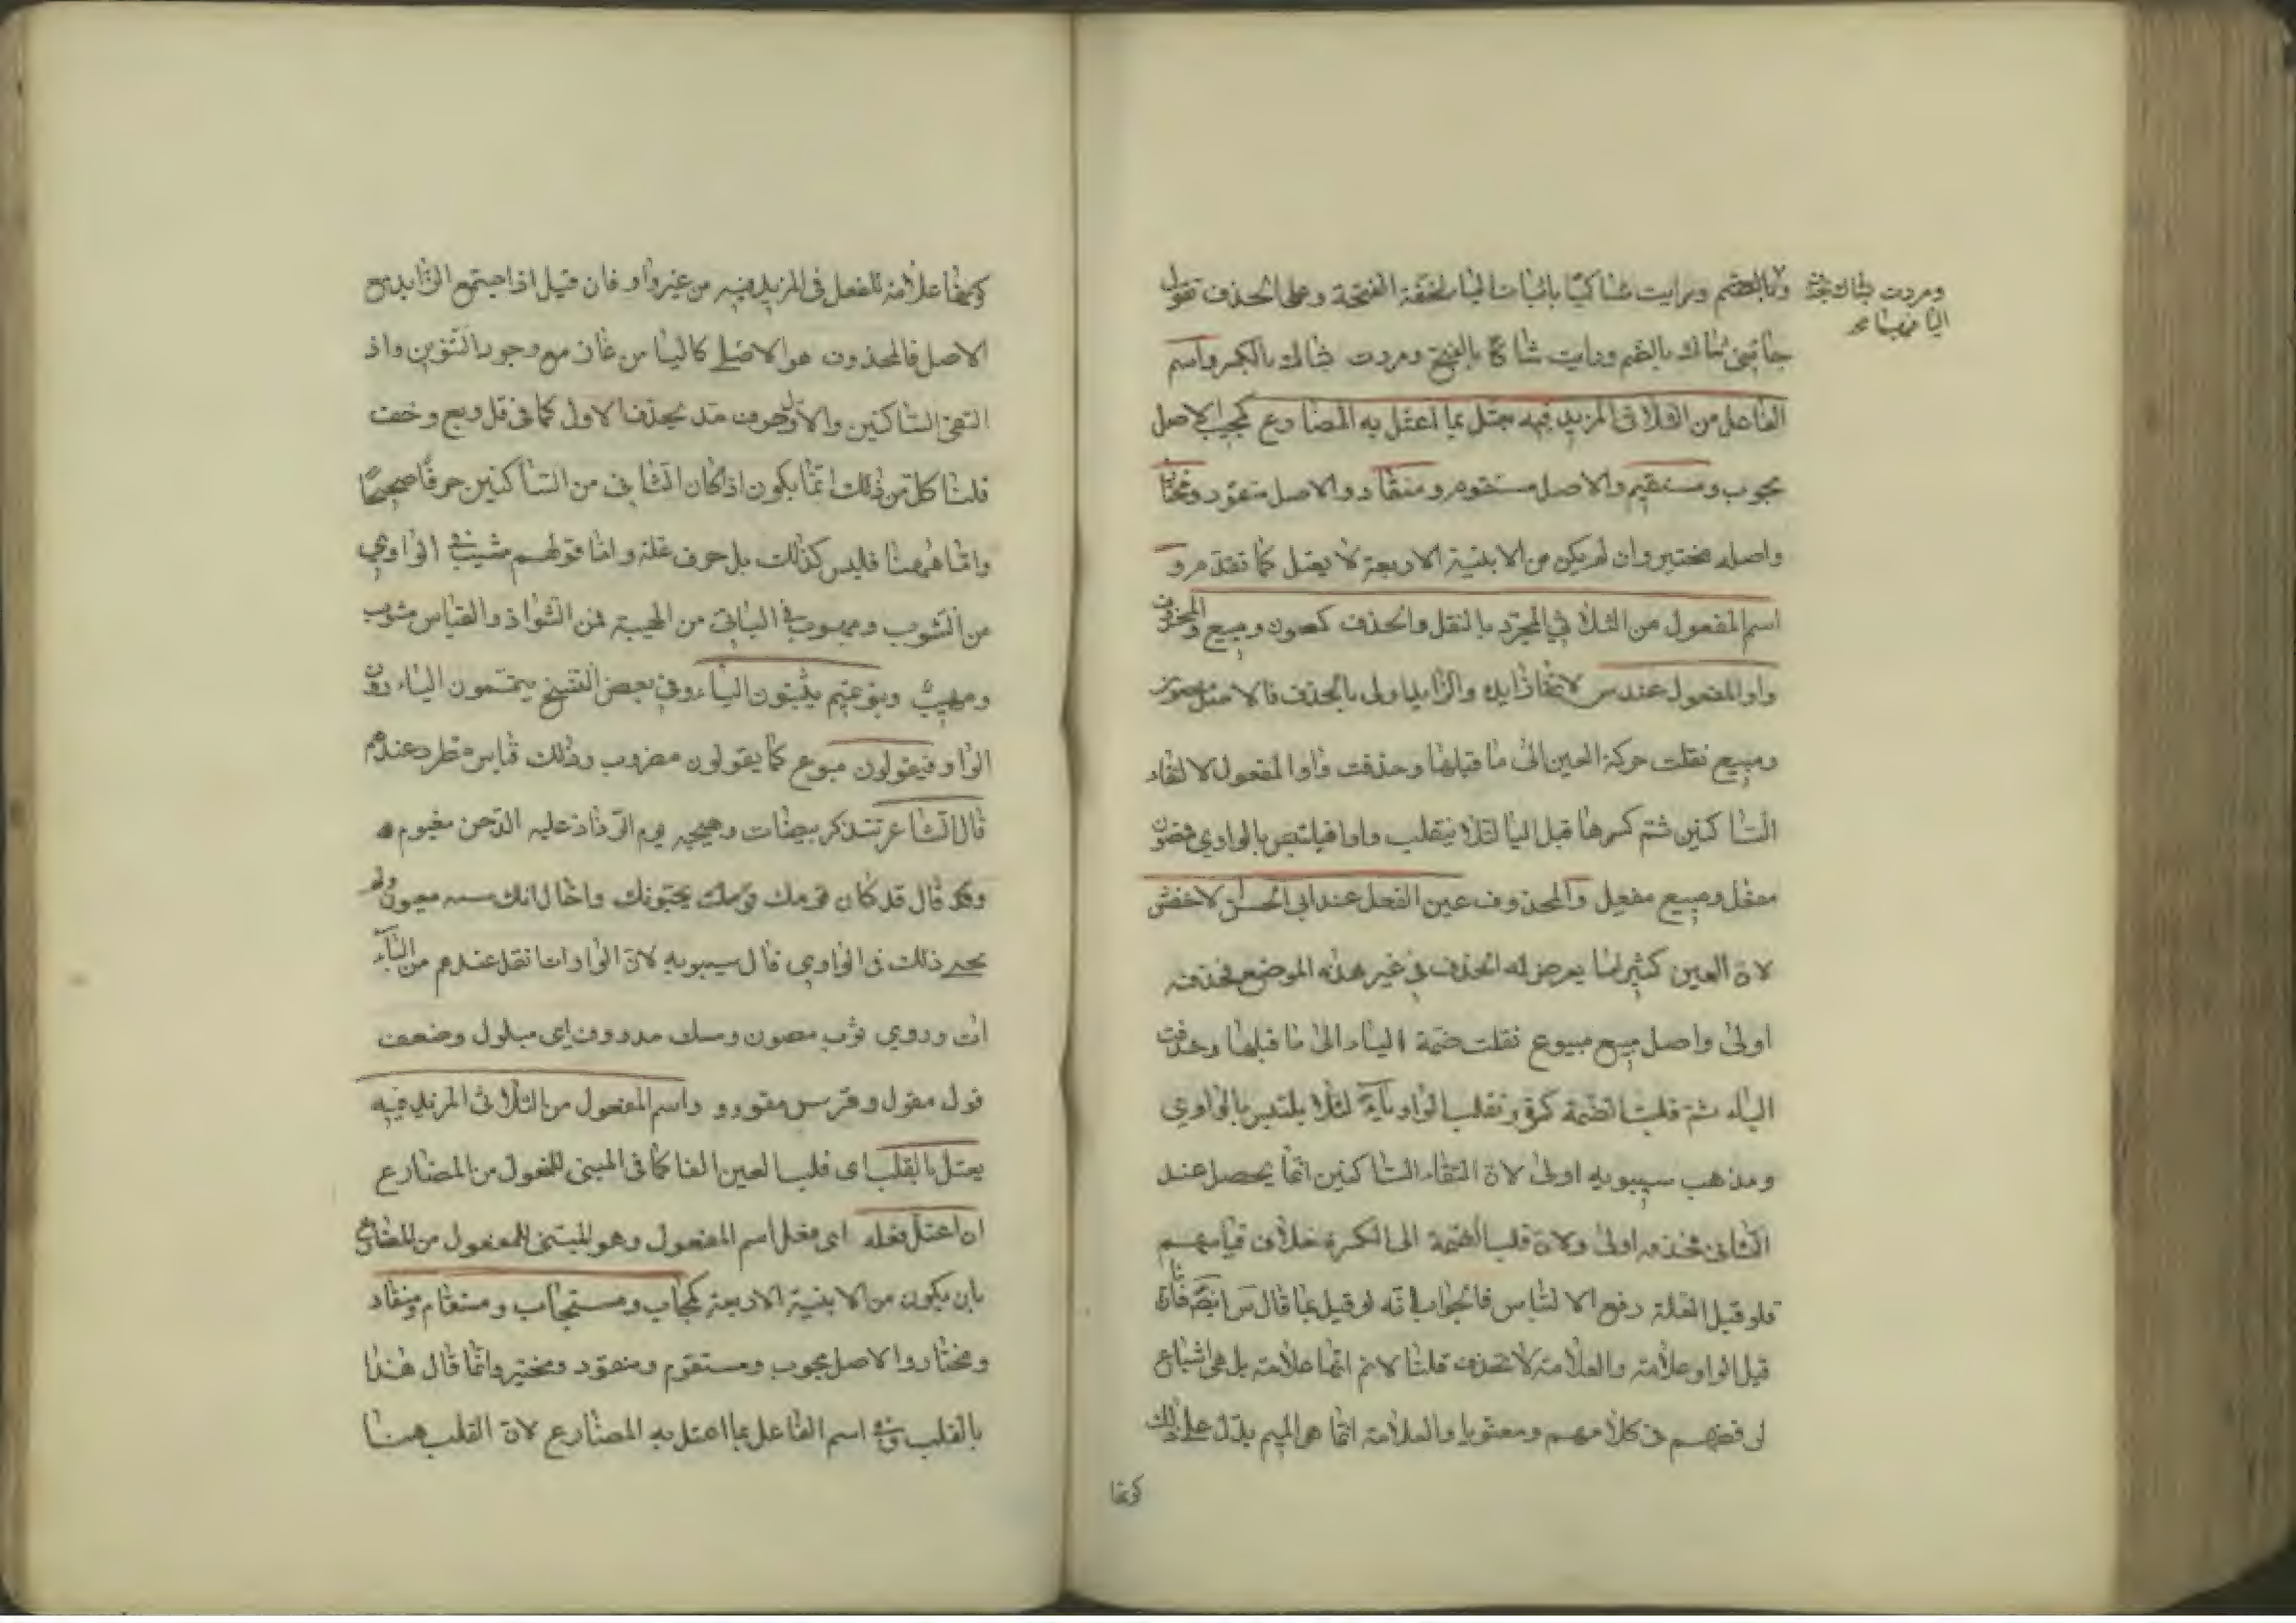 ولا بالضم ورايت شاكيًا باثبات اليا لخفة الفتحة وعلى الحذف تقول
ومررت بشاك بحذف
اليا فيهما صح
جائني شاك بالضم ورايت شاكا بالفتح ومررت بشاك بالكسر واسم
الفاعل من الثلاثى المزيد فيه يعتل بما اعتل به المضارع كمجيب الاصل
مجوب ومستقيم والاصل مستقوم ومنقاد والاصل منقود ومختار
واصله مختير وان لم يكن من الابنية الاربعة لا يعتل كما تقدم و
اسم المفعول من الثلاثي المجرد بالنقل والحذف كمصون ومبيع والمحذوف
واو المفعول عند س لانها زايدة والزايد اولى بالحذف فالاصل مصوون
ومبيع نقلت حركة العين الى ما قبلها وحذفت واو المفعول لالتقاء
الساكنين ثم كسر ما قبل اليا لئلا ينقلب واوا فيلتبس بالواوي فمصون
مفعل ومبيع مفعل والمحذوف عين الفعل عند ابى الحسن الاخفش
لان العين كثيرا ما يعرض له الحذف في غير هذه الموضع فحذفه
اولى واصل مبيع مبيوع نقلت ضمة الياء الى ما قبلها وحذفت
الياء ثم قلبت الضمة كسرة وتقلب الواو ياء لئلا يلتبس بالواوي
ومذهب سيبويه اولى لان التقاء الساكنين انما يحصل عند
الثانى فحذفه اولى ولان قلب الضمة الى الكسرة خلاف قياسهم
فلو قيل العلة دفع الالتباس فالجواب انه لو قيل بما قال س ايضا فان
قيل الواو علامة والعلامة لا تحذف قلنا لانم انها علامة بل هى اشباع
لرفضهم فى كلامهم ومعونا والعلامة انما هى الميم يدل على ذلك
كونها
كونها علامة للفعل فى المزيد فيه من غير واو فان قيل اذا اجتمع الزايد مع
الاصل فالمحذوف هو الاصلي كاليا من غاز مع وجود التنوين واذ
التقى الساكنين والاول حرف مد يحذف الاول كما فى قل وبع وخف
قلنا كل من ذلك انما يكون اذا كان الثانى من الساكنين حرفا صحيحًا
واما ههنا فليس كذلك بل حرف علة واما قولهم مشيب في الواوي
من الشوب ومهوب في اليائى من الهيبة فمن الشواذ والقياس مشوب
ومهيب وبنو تميم يثبتون الياء وفى بعض النسخ يتممون الياء دون
الواو فيقولون مبيوع كما يقولون مضروب وذلك قياس مطرد عندهم
قال الشاعر تتذكر بيضات وهيجه يوم الرذاذ عليه الدجن مغيوم
وقد قال قد كان قومك يحسبونك واخال انك سيد معيون ولم
يجئ ذلك فى الواوي قال سيبويه لان الواوات اثقل عندهم من الياء
ات وروي ثوب مصوون ومسك مدووف اى مبلول وضعف
قول مقوول وفرس مقوود واسم المفعول من الثلاثى المزيد فيه
يعتل بالقلب اى قلب العين الفا كما فى المبنى للمفعول من المضارع
ان اعتل فعله اى فعل اسم المفعول وهو المبنى للمفعول من المضارع
بان يكون من الابنية الاربعة كمجاب ومستجاب ومستقام ومنقاد
ومختار والاصل مجوب ومستقوم ومنقود ومختير وانما قال هنا
بالقلب وفى اسم الفاعل بما اعتل به المضارع لان القلب هنا